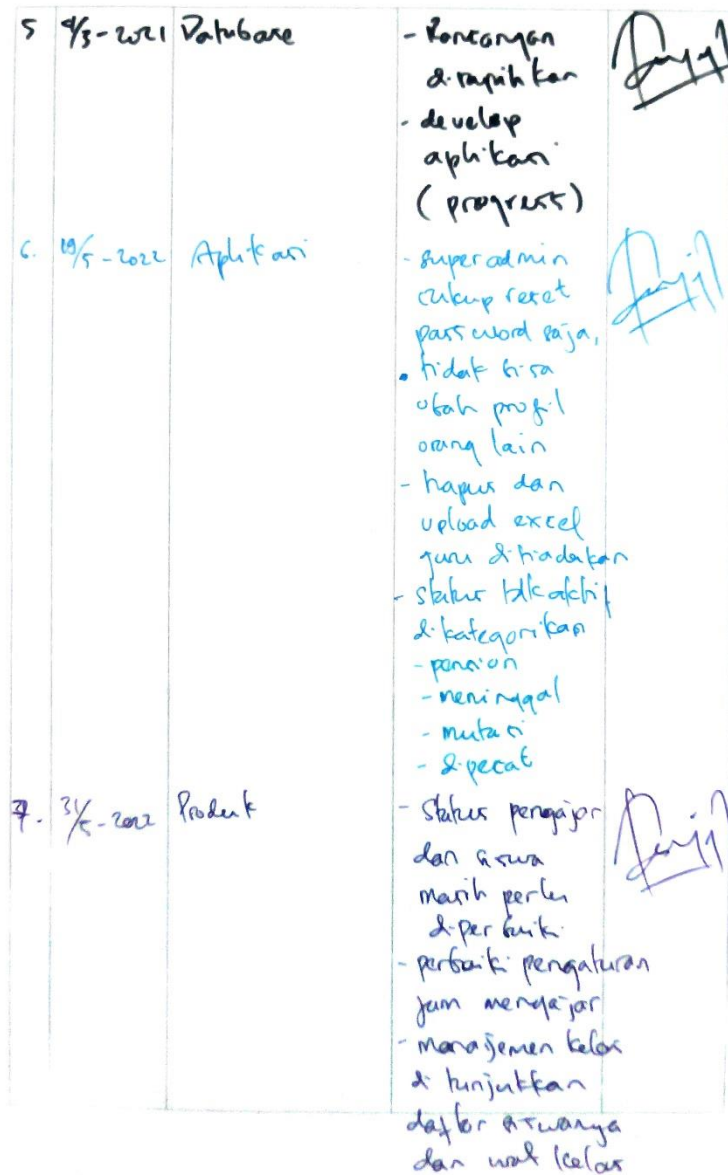 5 4/3-2021 Database - Rancangan
dirapihkan
- develop
aplikasi
(progress)
6. 19/5-2022 Aplikasi - superadmin
cukup reset
password saja,
• tidak bisa
ubah profil
orang lain
- hapus dan
upload excel
guru ditiadakan
- status tdk aktif
dikategorikan
- pensiun
- meninggal
- mutasi
- dipecat
7. 31/5-2022 Produk - Status pengajar
dan siswa
masih perlu
diperbaiki
- perbaiki pengaturan
jam mengajar
- manajemen kelas
ditunjukkan
daftar siswanya
dan wal kelas